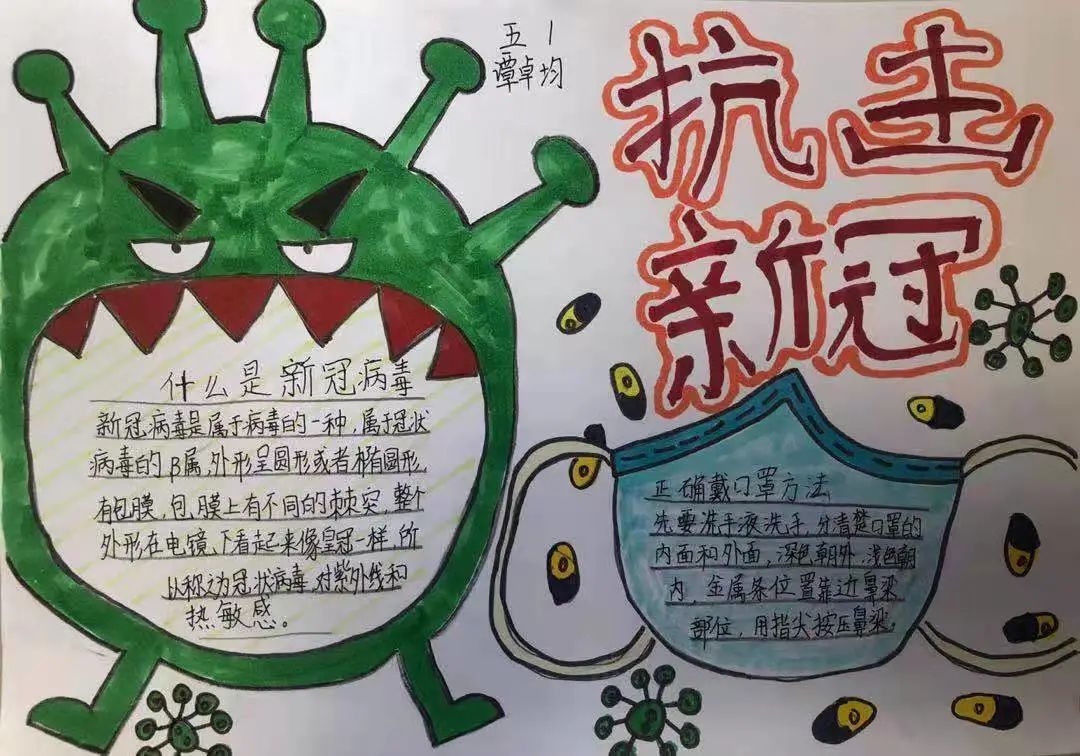 五1
谭卓均
抗击
新冠
什么是新冠病毒
新冠病毒是属于病毒的一种,属于冠状
病毒的β属,外形呈圆形或者椭圆形,
有包膜,包膜上有不同的棘突,整个
外形在电镜下看起来像皇冠一样,所
以称为冠状病毒,对紫外线和
热敏感。
正确戴口罩方法
先要洗手液洗手,分清楚口罩的
内面和外面,深色朝外,浅色朝
内,金属条位置靠近鼻梁
部位,用指尖按压鼻梁。